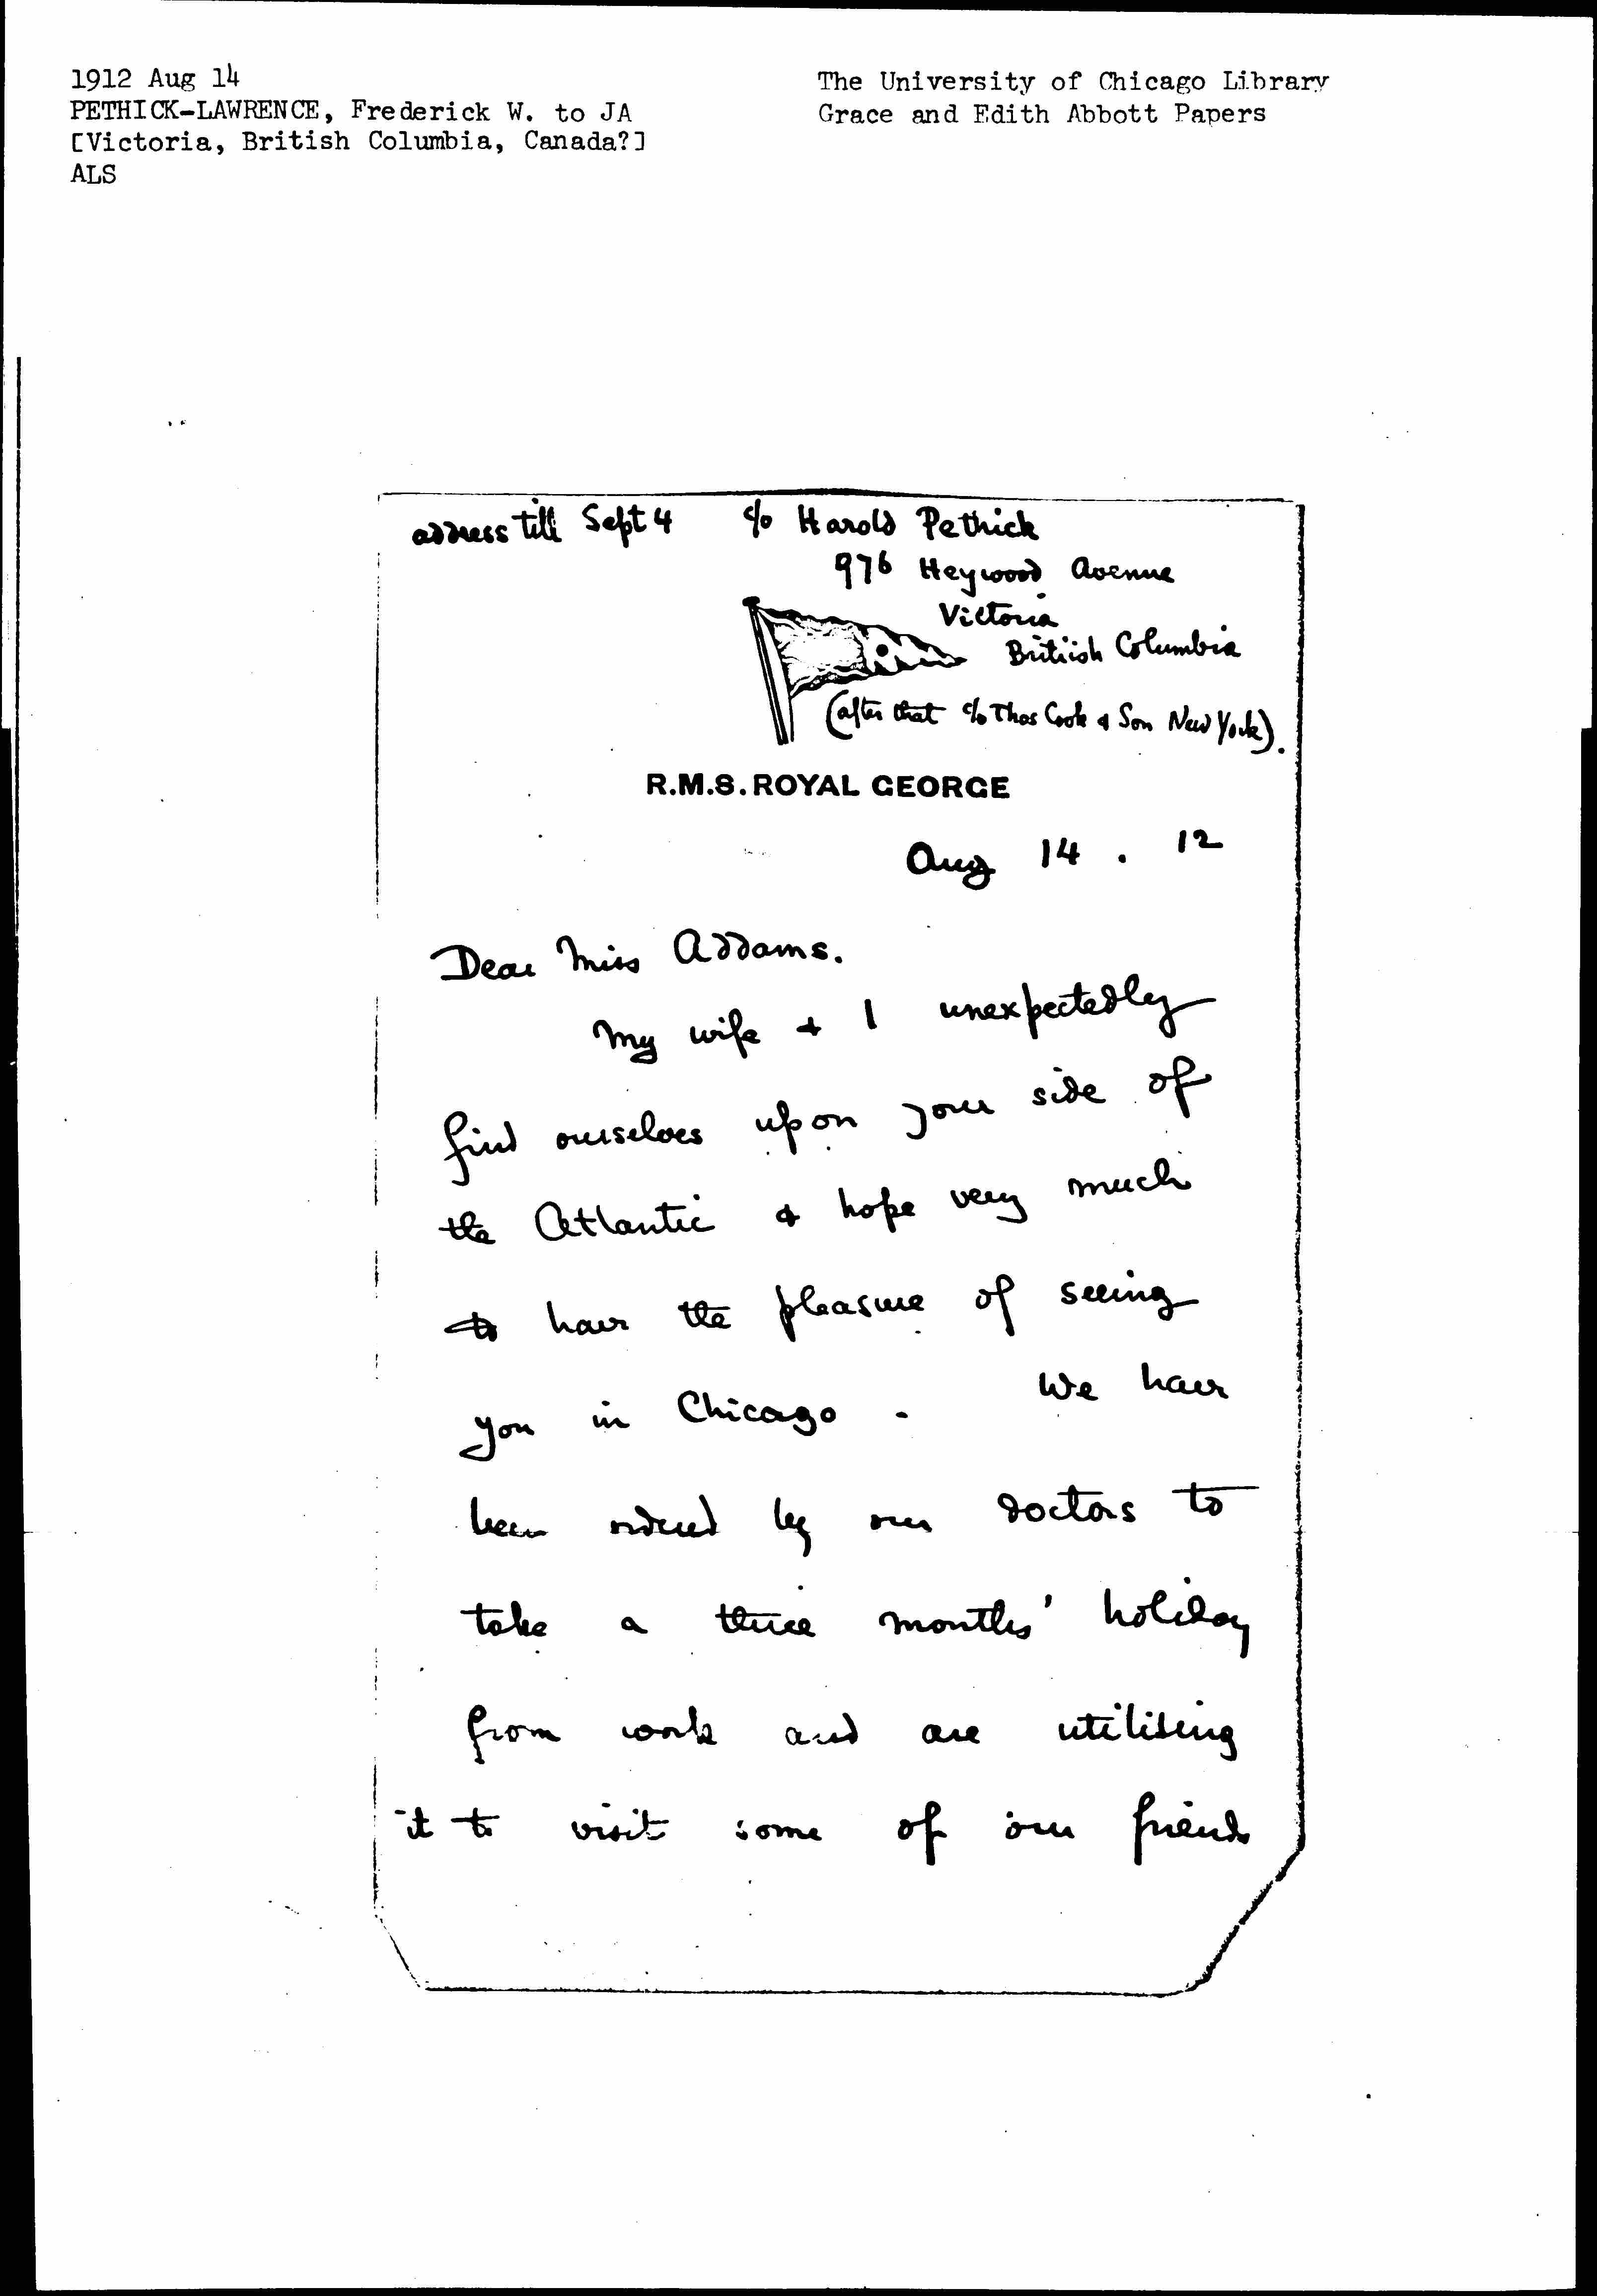 1912 Aug 14
PETHICK-LAWRENCE, Frederick W. to JA
[Victoria, British Columbia, Canada?]
ALS
The University of Chicago Library
Grace and Edith Abbott Papers
address till Sept 4 c/o Harold Pethick
976 Heywood Avenue
Victoria
British Columbia
(after that c/o Thos Cook & Son New York).
R.M.S. ROYAL GEORGE
Aug 14 . 12
Dear Miss Addams.
My wife & I unexpectedly
find ourselves upon your side of
the Atlantic & hope very much
to have the pleasure of seeing
you in Chicago. We have
been ordered by our doctors to
take a three months' holiday
from work and are utilising
it to visit some of our friends